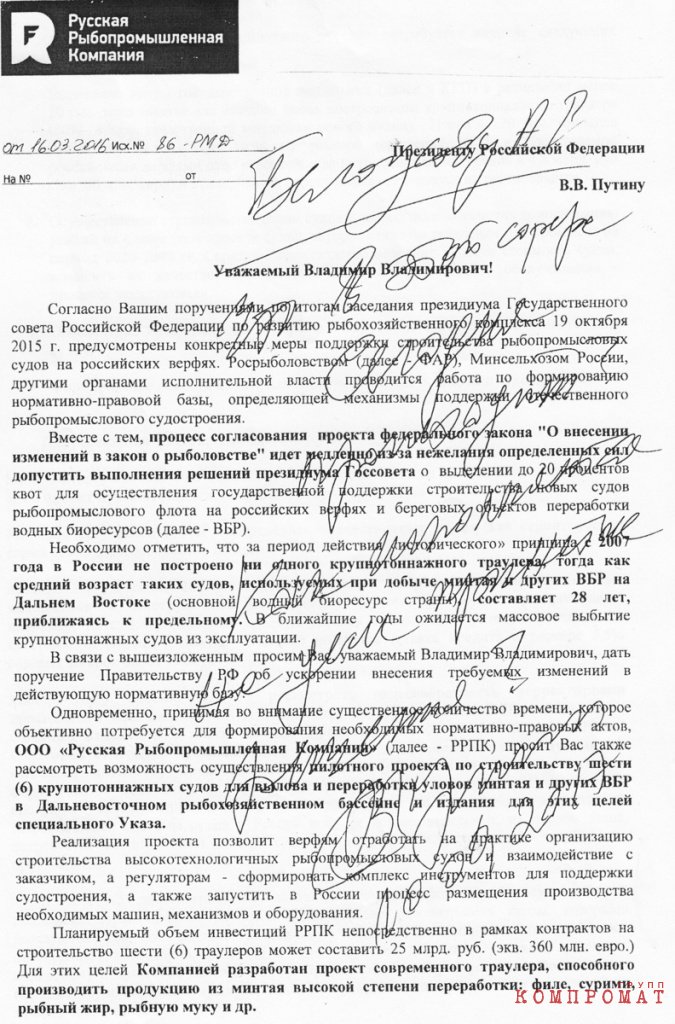 Русская
Рыбопромышленная
Компания
от 16.03.2016 Исх.№ 86-РМД
На № от
Президенту Российской Федерации
В.В. Путину
Белоусову А Р
В этой сфере
Уважаемый Владимир Владимирович!
Согласно Вашим поручениям по итогам заседания президиума Государственного
совета Российской Федерации по развитию рыбохозяйственного комплекса 19 октября
2015 г. предусмотрены конкретные меры поддержки строительства рыбопромысловых
судов на российских верфях. Росрыболовством (далее - ФАР), Минсельхозом России,
другими органами исполнительной власти проводится работа по формированию
нормативно-правовой базы, определяющей механизмы поддержки отечественного
рыбопромыслового судостроения.
Вместе с тем, процесс согласования проекта федерального закона "О внесении
изменений в закон о рыболовстве" идет медленно из-за нежелания определенных сил
допустить выполнения решений президиума Госсовета о выделении до 20 процентов
квот для осуществления государственной поддержки строительства новых судов
рыбопромыслового флота на российских верфях и береговых объектов переработки
водных биоресурсов (далее - ВБР).
Необходимо отметить, что за период действия «исторического» принципа с 2007
года в России не построено ни одного крупнотоннажного траулера, тогда как
средний возраст таких судов, используемых при добыче минтая и других ВБР на
Дальнем Востоке (основной водный биоресурс страны), составляет 28 лет,
приближаясь к предельному. В ближайшие годы ожидается массовое выбытие
крупнотоннажных судов из эксплуатации.
В связи с вышеизложенным просим Вас, уважаемый Владимир Владимирович, дать
поручение Правительству РФ об ускорении внесения требуемых изменений в
действующую нормативную базу.
Одновременно, принимая во внимание существенное количество времени, которое
объективно потребуется для формирования необходимых нормативно-правовых актов,
ООО «Русская Рыбопромышленная Компания» (далее - РРПК) просит Вас также
рассмотреть возможность осуществления пилотного проекта по строительству шести
(6) крупнотоннажных судов для вылова и переработки уловов минтая и других ВБР
в Дальневосточном рыбохозяйственном бассейне и издания для этих целей
специального Указа.
Реализация проекта позволит верфям отработать на практике организацию
строительства высокотехнологичных рыбопромысловых судов и взаимодействие с
заказчиком, а регуляторам - сформировать комплекс инструментов для поддержки
судостроения, а также запустить в России процесс размещения производства
необходимых машин, механизмов и оборудования.
Планируемый объем инвестиций РРПК непосредственно в рамках контрактов на
строительство шести (6) траулеров может составить 25 млрд. руб. (экв. 360 млн. евро.)
Для этих целей Компанией разработан проект современного траулера, способного
производить продукцию из минтая высокой степени переработки: филе, сурими,
рыбный жир, рыбную муку и др.
КОМПРОМАТ